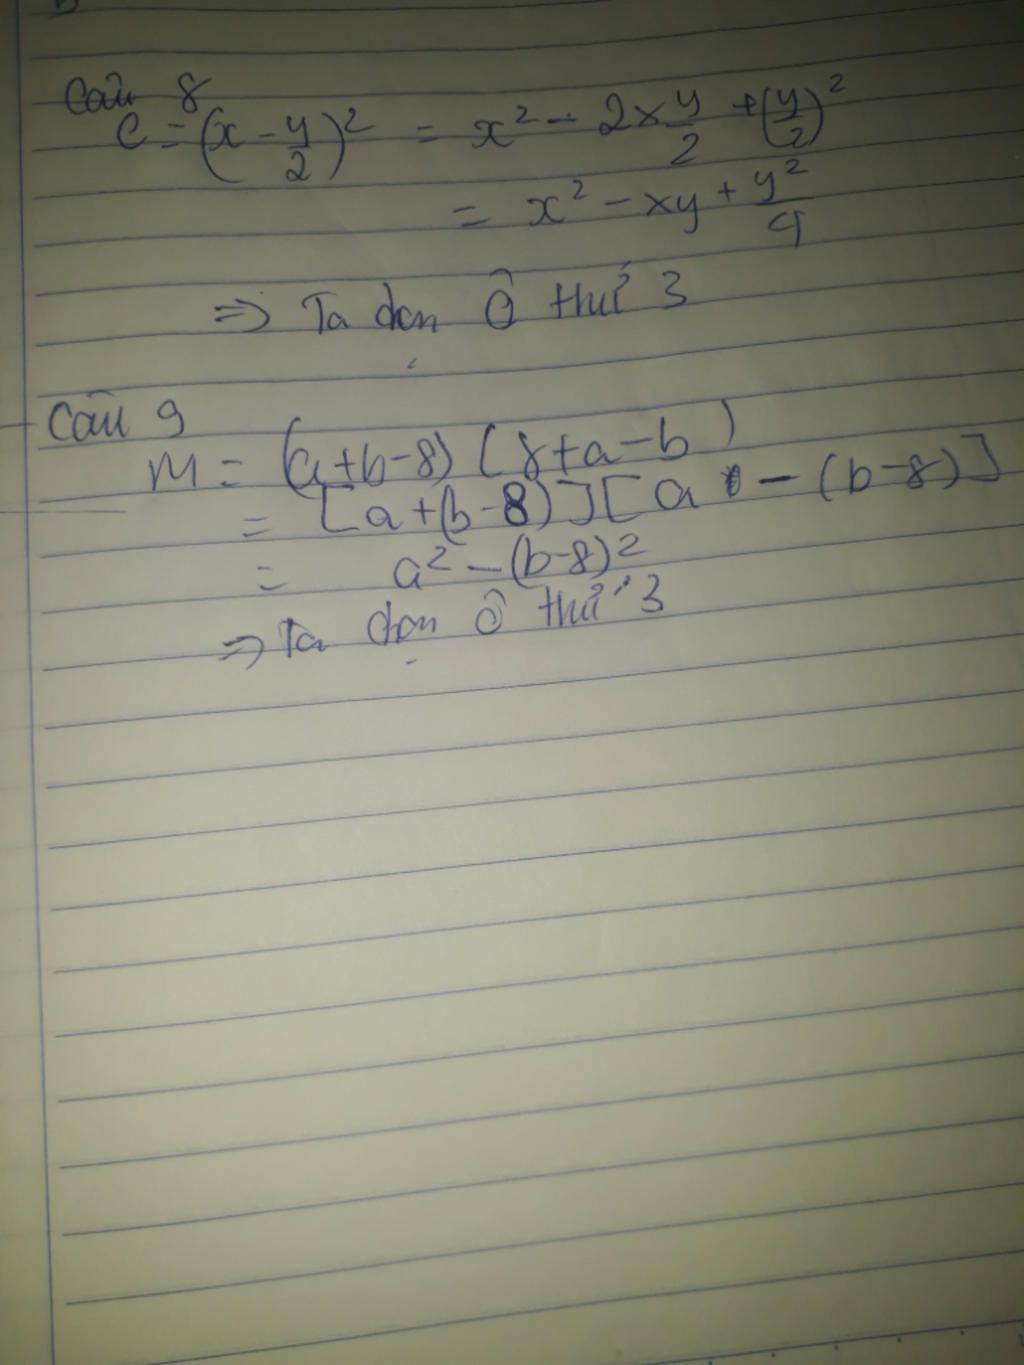 Câu 8
C = (x - y/2)² = x² - 2x y/2 + (y/2)²
= x² - xy + y²/4
=> Ta chọn ô thứ 3
Câu 9
M = (a+b-8) (8+a-b)
= [a+(b-8)][a - (b-8)]
= a² - (b-8)²
=> Ta chọn ô thứ 3